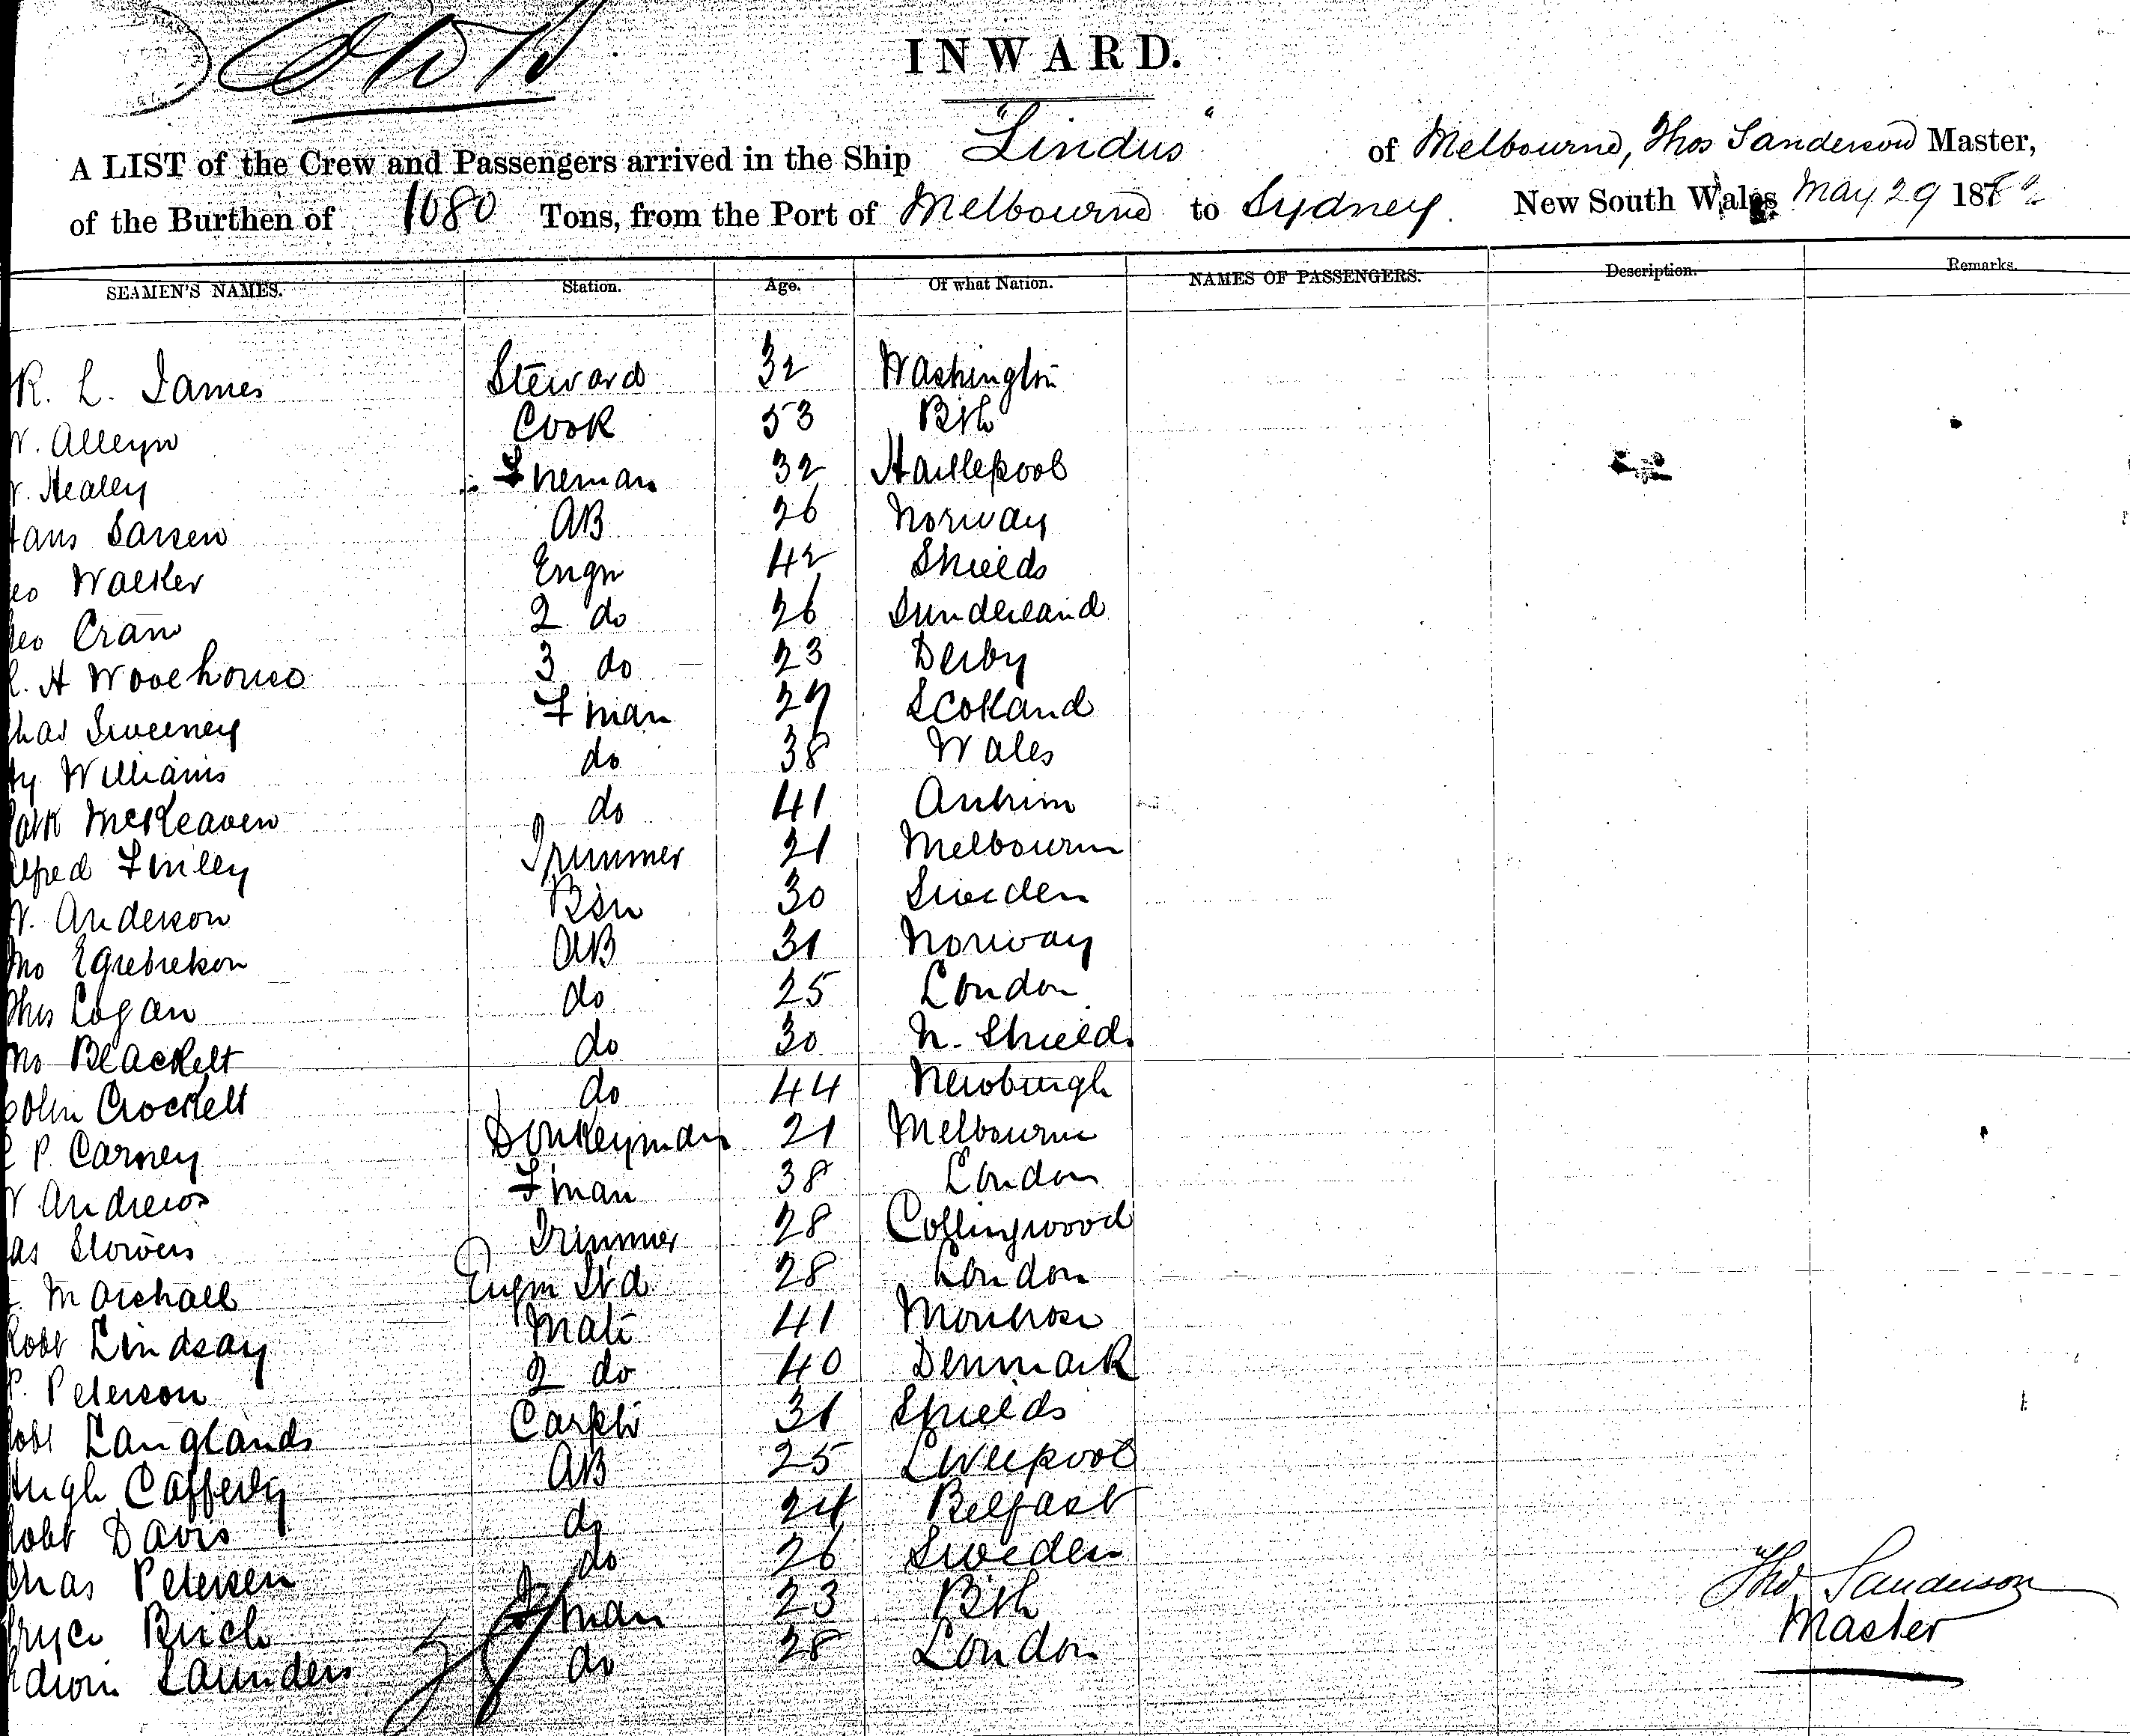 INWARD.
A LIST of the Crew and Passengers arrived in the Ship "Lindus" of Melbourne, Thos Sanderson Master,
of the Burthen of 1080 Tons, from the Port of Melbourne to Sydney. New South Wales May 29 188
SEAMEN'S NAMES. Station. Age. Of what Nation. NAMES OF PASSENGERS. Description. Remarks.
R. L. James Steward 32 Washington
W. Alleyn Cook 53 Bth
Healey Fireman 32 Hartlepool
Hans Larsen AB 26 Norway
Geo Walker Engr 42 Shields
Geo Cram 2 do 26 Sunderland
H Woodhouse 3 do 23 Derby
Chas Sweeney Fman 27 Scotland
Hy Williams do 38 Wales
Patk McKeaven do 41 Antrim
Alfred Finley Trimmer 21 Melbourne
Anderson Bsn 30 Sweden
Jno AB 31 Norway
Thos Logan do 25 London
Jno Blackett do 30 N. Shields
Colin Crockett do 44 Newburgh
P. Carney Donkeyman 21 Melbourne
W Andrews Fman 38 London
Jas Stowers Trimmer 28 Collingwood
Marshall Engrs Std 28 London
Robt Lindsay Mate 41 Montrose
P. Peterson 2 do 40 Denmark
Robt Langlands Carptr 31 Shields
Hugh Cafferty AB 25 Liverpool
Robt Davis do 24 Belfast
Chas Petersen do 26 Sweden
Bryce Birch Fman 23 Bth
Edwin Saunders do 28 London
Thos Sanderson
Master